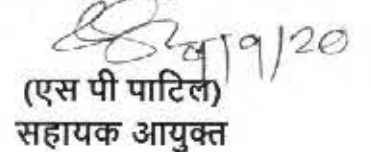 9/20
(एस पी पाटिल)
सहायक आयुक्त